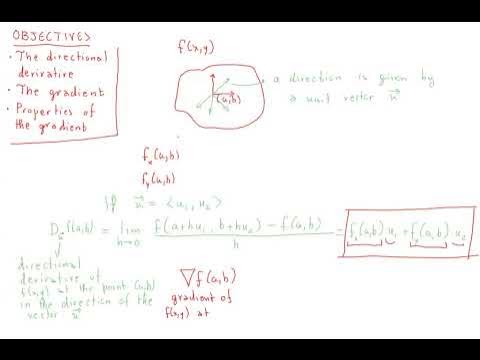 OBJECTIVES
• The directional
derivative
• The gradient
• Properties of
the gradient
f(x,y)
(a,b)
• a direction is given by
a unit vector u⃗
fₓ(a,b)
fᵧ(a,b)
If u⃗ = <u₁, u₂>
D_u⃗ f(a,b) = lim h→0 f(a+hu₁, b+hu₂) - f(a,b) / h = fₓ(a,b) u₁ + fᵧ(a,b) u₂
directional
derivative of
f(x,y) at the point (a,b)
in the direction of the
vector u⃗
∇f(a,b)
gradient of
f(x,y) at